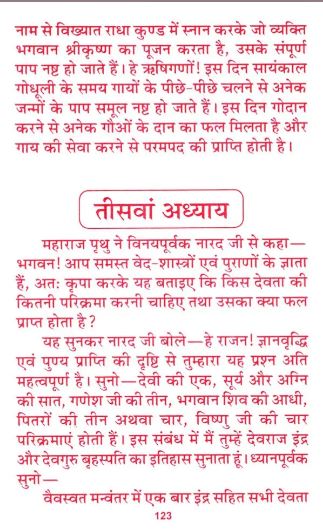 नाम से विख्यात राधा कुण्ड में स्नान करके जो व्यक्ति
भगवान श्रीकृष्ण का पूजन करता है, उसके संपूर्ण
पाप नष्ट हो जाते हैं। हे ऋषिगणों! इस दिन सायंकाल
गोधूली के समय गायों के पीछे-पीछे चलने से अनेक
जन्मों के पाप समूल नष्ट हो जाते हैं। इस दिन गोदान
करने से अनेक गौओं के दान का फल मिलता है और
गाय की सेवा करने से परमपद की प्राप्ति होती है।
तीसवां अध्याय
महाराज पृथु ने विनयपूर्वक नारद जी से कहा—
भगवन! आप समस्त वेद-शास्त्रों एवं पुराणों के ज्ञाता
हैं, अतः कृपा करके यह बताइए कि किस देवता की
कितनी परिक्रमा करनी चाहिए तथा उसका क्या फल
प्राप्त होता है?
यह सुनकर नारद जी बोले—हे राजन! ज्ञानवृद्धि
एवं पुण्य प्राप्ति की दृष्टि से तुम्हारा यह प्रश्न अति
महत्वपूर्ण है। सुनो—देवी की एक, सूर्य और अग्नि
की सात, गणेश जी की तीन, भगवान शिव की आधी,
पितरों की तीन अथवा चार, विष्णु जी की चार
परिक्रमाएं होती हैं। इस संबंध में मैं तुम्हें देवराज इंद्र
और देवगुरु बृहस्पति का इतिहास सुनाता हूं। ध्यानपूर्वक
सुनो—
वैवस्वत मन्वंतर में एक बार इंद्र सहित सभी देवता
123